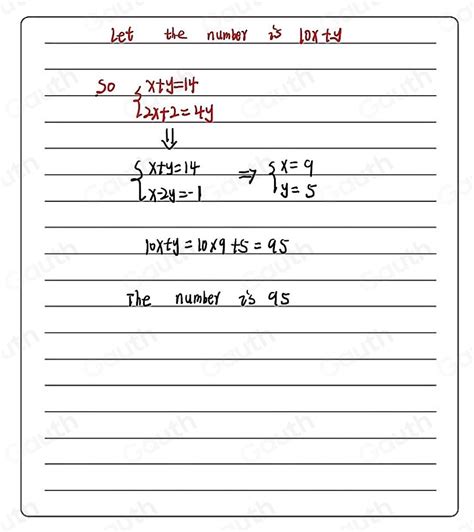 Let the number is 10x+y
So { x+y=14
2x+2=4y
⇓
{ x+y=14 ⇒ { x=9
x-2y=-1 y=5
10x+y=10x9+5=95
The number is 95
Gauth